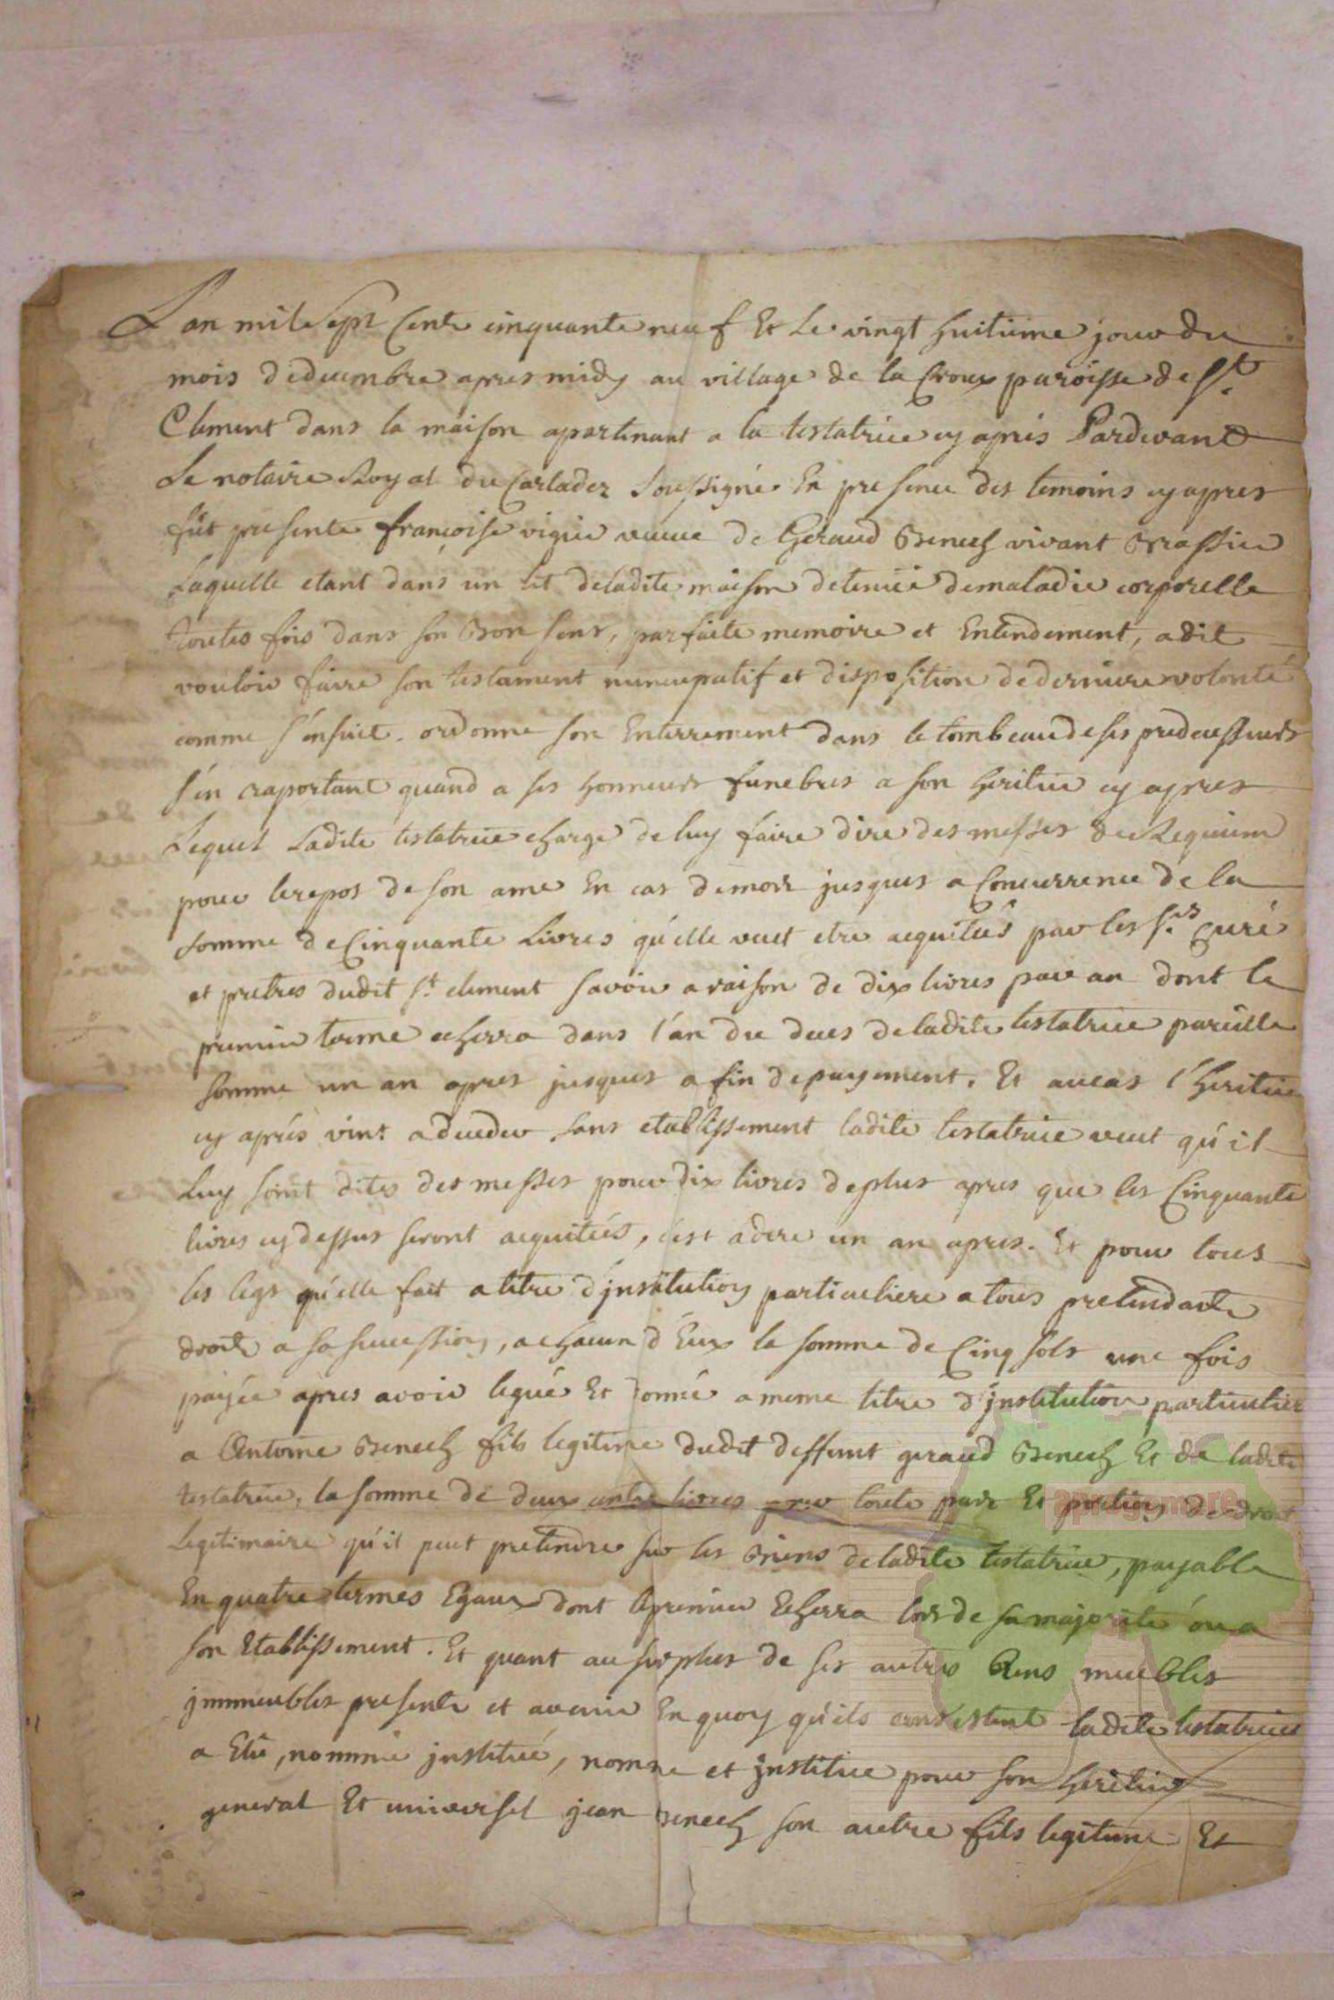 L'an mil sept Cents cinquante neuf Et Le vingt huitieme jour du
mois de decembre apres midy au village de la Croux paroisse de St.
Clement dans la maison apartenant a la testatrice cy aprés Pardevant
Le notaire Royal du Carladez Soussigné En presence des temoins cy apres
fut presente françoise vigier veuve de Geraud Benech vivant Brassier
Laquelle etant dans un lit de ladite maison detenüe de maladie corporelle
toutes fois dans son Bon sens, parfaite memoire et Entendement, a dit
vouloir faire son testament nuncupatif et disposition de derniere volonté
comme s'ensuit. ordonne son Enterrement dans le tombeau de ses predecesseurs
s'en raportant quand a ses honneurs funebres a son heritier cy apres
Lequel Ladite testatrice charge de luy faire dire des messes de Requiem
pour le repos de son ame En cas de mort jusques a Concurrence de la
somme de Cinquante Livres qu'elle veut etre acquitées par les srs. Curé
et pretres dudit st. clement savoir a raison de dix livres par an dont le
premier terme echerra dans l'an du deces de ladite testatrice pareille
somme un an apres jusques a fin de payement. Et au cas l'heritier
cy aprés vint a deceder sans etablissement ladite testatrice veut qu'il
Luy soint dites des messes pour dix livres de plus apres que les Cinquante
livres cy dessus seront acquitées, c'est a dire un an apres. Et pour tous
les legs qu'elle fait a titre d'institution particuliere a tous pretendants
droits a sa succession, a chacun d'Eux la somme de Cinq sols une fois
payée apres avoir legué Et donné a meme titre d'institution particuliere
a Antoine Benech fils legitime dudit deffunt geraud Benech Et de ladite
testatrice, la somme de deux cents livres pour toute part Et portion de droit
Legitimaire qu'il peut pretendre sur les Biens de ladite testatrice, payable
En quatre termes Egaux dont le premier Echerra lors de sa majorité ou a
son Etablissement. Et quant au surplus de ses autres Biens meubles
immeubles presents et avenir En quoy qu'ils consistent ladite testatrice
a Elu, nommé institué, nomme et institue pour son heritier
general Et universel jean Benech son autre fils legitime Et
aprogemere